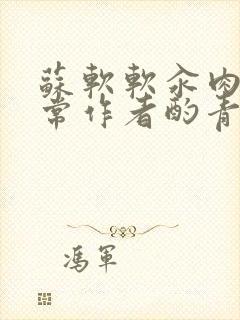 蘇軟軟汆肉
常作者酌青
馮軍